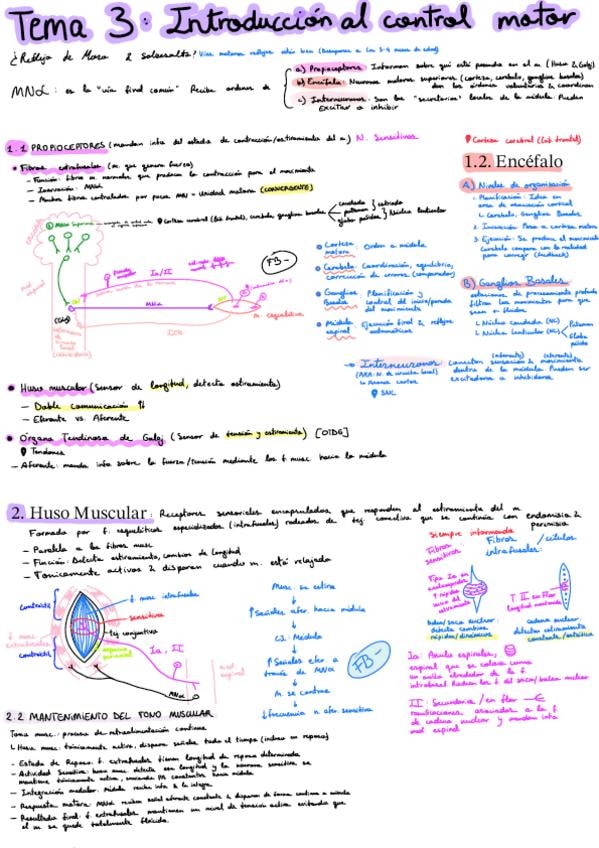 Tema 3: Introducción al control motor
¿Reflejo de Moro & Salosalts? Vías motoras reflejas están bien (Desaparece a los 3-4 meses de edad)
MNα: es la "vía final común" Recibe ordenes de
a) Propioceptores Informan sobre qué está pasando en el m (Huso & Golgi)
b) Encéfalo: Neuronas motoras superiores (corteza, cerebelo, ganglios basales)
dan las órdenes voluntarias & coordinan
c) Interneuronas: Son las "secretarias" locales de la médula. Pueden
excitar o inhibir
1.1 PROPIOCEPTORES (mandan info del estado de contracción/estiramiento del m.) N. Sensitivas
• Fibras extrafusales (m. que genera fuerza)
- Función: fibra m. normales que producen la contracción para el movimiento
- Inervación: MNα
- Muchas fibras controladas por pocas MN = Unidad motora (CONVERGENTE)
Corteza cerebral (lob. frontal), cerebelo, ganglios basales
caudado
putamen
globo pálido
estriado
Núcleo lenticular
Ia/II
MNα
FB-
(Golgi)
m. esquelético
Corteza cerebral (lob. frontal)
1.2. Encéfalo
A) Niveles de organización
1. Planificación: Idea en
área de asociación cortical
↳ Cerebelo, Ganglios Basales
2. Iniciación: Pasa a corteza motora
3. Ejecución: Se produce el movimiento
cerebelo compara con la realidad
para corregir (feedback)
B) Ganglios Basales
estaciones de procesamiento profundas
filtran los movimientos para que
sean + fluidos
↳ Núcleo caudado (NC)
↳ Núcleo lenticular (NL)
Putamen
Globo pálido
• Corteza motora: Orden a médula
• Cerebelo: Coordinación, equilibrio,
corrección de errores (comparador)
• Ganglios Basales: Planificación & control del inicio/parada
del movimiento
• Médula espinal: Ejecución final & reflejos
automáticos
→ Interneuronas: conectan sensación & movimiento
(AKA: N. de circuito local) dentro de la médula. Pueden ser
↳ Axones cortos excitadoras o inhibidoras
SNC
• Huso muscular (Sensor de longitud, detecta estiramiento)
- Doble comunicación ↑↓
- Eferente vs. Aferente
• Órgano Tendinoso de Golgi (Sensor de tensión y estiramiento) [OTDG]
Tendones
- Aferente: manda info sobre la fuerza/tensión mediante los f. musc. hacia la médula
2. Huso Muscular: Receptores sensoriales encapsulados, que responden al estiramiento del m
Formado por f. esqueléticas especializadas (intrafusales) rodeadas de tej. conectivo que se continúa con endomisio &
perimisio
- Paralelo a las fibras musc
- Función: Detecta estiramiento, cambios de longitud
- Tónicamente activos & disparan cuando m. está relajado
siempre informando
Fibras sensitivas: Fibras / células intrafusales:
contráctil
f. musc intrafusales
sensitiva
tej conjuntivo
f. musc. extrafusales
contráctil
Ia, II
MNα
Musc. se estira
↑ Señales afer. hacia médula
↑ Señales efer a
través de MNα
M. se contrae
↓ frecuencia n. afer. sensitiva
FB-
bolsa/saco nuclear:
detecta cambios
rápidos/dinámicos
T. II en Flor
cadena nuclear:
detectan estiramiento
constante/estático
Ia: Anulo espirales,
espiral que se coloca como
un anillo alrededor de la f.
intrafusal. Rodean las f. del saco/bolsa nuclear
II: Secundarias/en flor
ramificaciones asociadas a la f.
de cadena nuclear y mandan info
med espinal
2.2 MANTENIMIENTO DEL TONO MUSCULAR
Tono musc.: proceso de retroalimentación continua
↳ Huso musc. tónicamente activo, dispara señales todo el tiempo (incluso en reposo)
- Estado de Reposo: f. extrafusales tienen longitud de reposo determinada
- Actividad Sensitiva: huso musc detecta esa longitud y la neurona sensitiva se
mantiene tónicamente activa, enviando PA constantes hacia médula
- Integración medular: médula recibe info & la integra
- Respuesta motora: MNα reciben señal aferente constante & disparan de forma continua a músculo
- Resultado final: f. extrafusales mantienen un nivel de tensión activa evitando que
el m se quede totalmente flácido.